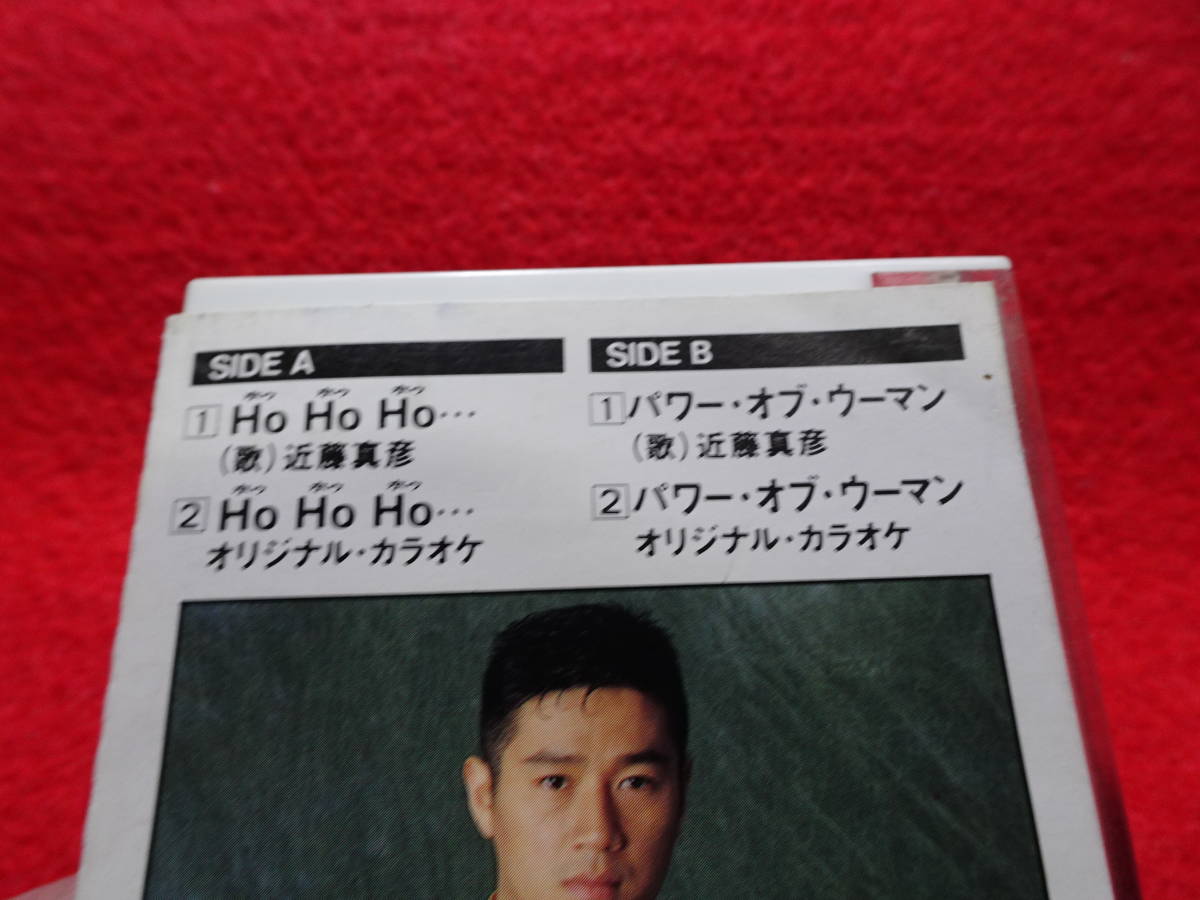 SIDE A
かっ かっ かっ
1 Ho Ho Ho…
(歌)近藤真彦
かっ かっ かっ
2 Ho Ho Ho…
オリジナル・カラオケ
SIDE B
1 パワー・オブ・ウーマン
(歌)近藤真彦
2 パワー・オブ・ウーマン
オリジナル・カラオケ